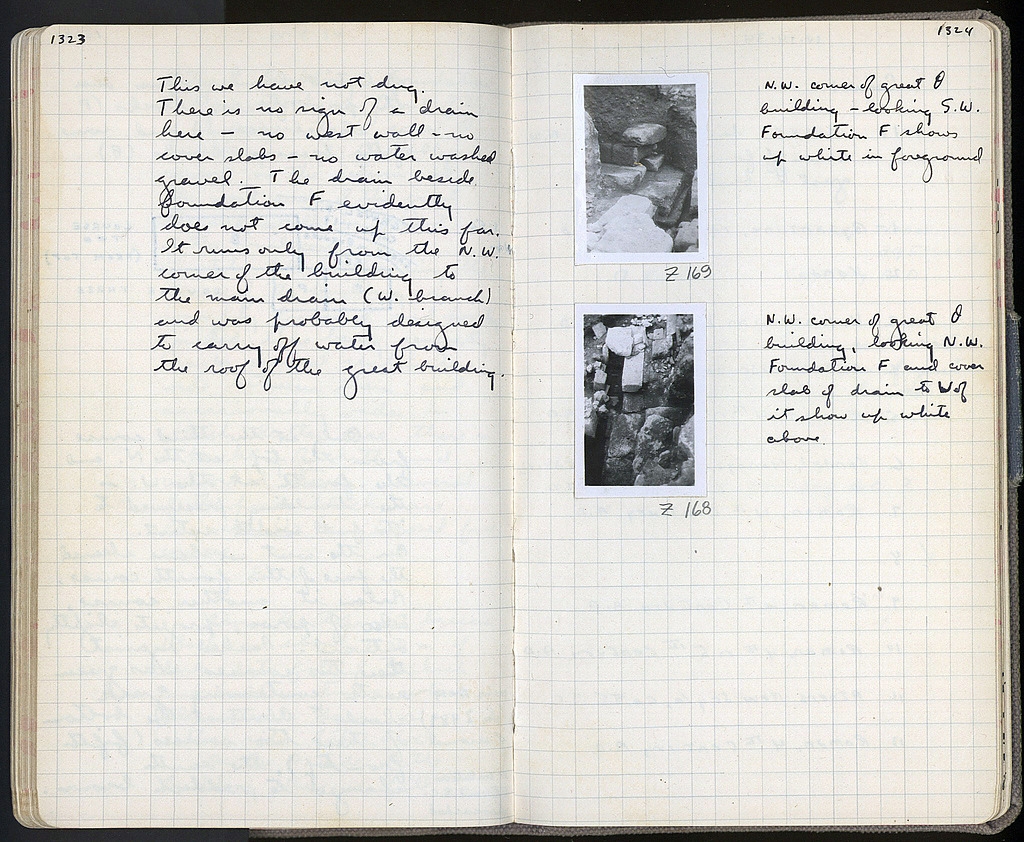 1323
This we have not dug.
There is no sign of a drain
here – no west wall – no
cover slabs – no water washed
gravel. The drain beside
foundation F evidently
does not come up this far.
It runs only from the N.W.
corner of the building to
the main drain (W. branch)
and was probably designed
to carry off water from
the roof of the great building.
1324
N.W. corner of great θ
building – looking S.W.
Foundation F shows
up white in foreground
Z 169
N.W. corner of great θ
building, looking N.W.
Foundation F and cover
slab of drain to W of
it show up white
above.
Z 168